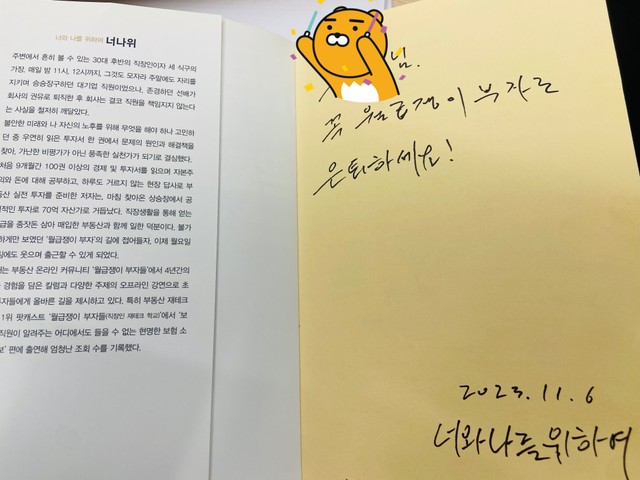 너와 나를 위하여 너나위
주변에서 흔히 볼 수 있는 30대 후반의 직장인이자 세 식구의
가장. 매일 밤 11시, 12시까지, 그것도 모자라 주말에도 자리를
지키며 승승장구하던 대기업 직원이었으나, 존경하던 선배가
회사의 권유로 퇴직한 후 회사는 결코 직원을 책임지지 않는다
는 사실을 절저히 깨달았다.
불안한 미래와 나 자신의 노후를 위해 무엇을 해야 하나 고민하
던 중 우연히 읽은 투자서 한 권에서 문제의 원인과 해결책을
찾아, 가난한 비평가가 아닌 풍족한 실천가가 되기로 결심했다.
처음 9개월간 100권 이상의 경제 및 투자서를 읽으며 자본주
의와 돈에 대해 공부하고, 하루도 거르지 않는 현장 답사로 부
동산 실전 투자를 준비한 저자는, 마침 찾아온 상승장에서 공
격적인 투자로 70억 자산가로 거듭났다. 직장생활을 통해 얻는
급을 종잣돈 삼아 매입한 부동산과 함께 일한 덕분이다. 불가
하게만 보였던 '월급쟁이 부자'의 길에 접어들자, 이제 월요일
침에도 웃으며 출근할 수 있게 되었다.
재는 부동산 온라인 커뮤니티 '월급쟁이 부자들'에서 4년간의
경험을 담은 칼럼과 다양한 주제의 오프라인 강연으로 초
투자들에게 올바른 길을 제시하고 있다. 특히 부동산 재테크
1위 팟캐스트 '월급쟁이 부자들(직장인 재테크 학교)'에서 '보
직원이 알려주는 어디에서도 들을 수 없는 현명한 보험 소
보' 편에 출연해 엄청난 조회 수를 기록했다.
님.
꼭 월급쟁이 부자로
은퇴하세요!
2023. 11. 6
너와나를위하여